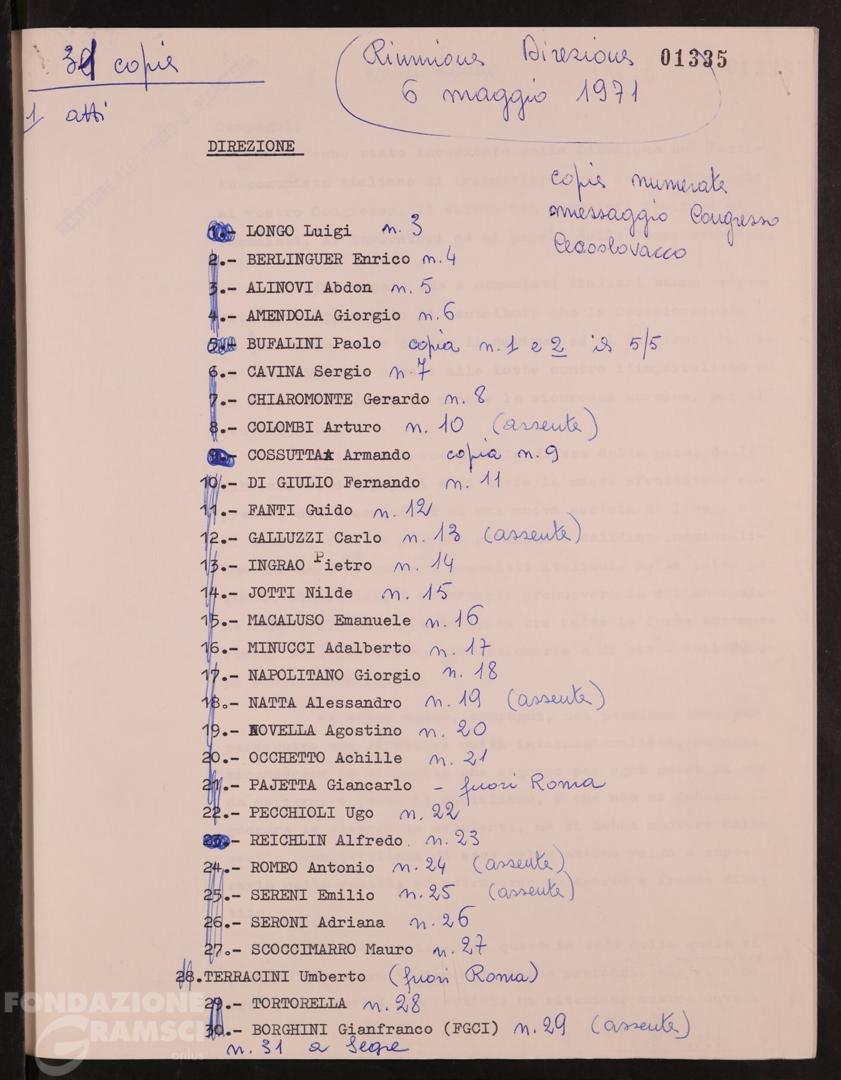 31 copie
1 atti
Riunione Direzione 01335
6 maggio 1971
DIREZIONE
copie numerate
messaggio Congresso
Cecoslovacco
1.- LONGO Luigi n. 3
2.- BERLINGUER Enrico n. 4
3.- ALINOVI Abdon n. 5
4.- AMENDOLA Giorgio n. 6
5.- BUFALINI Paolo copia n. 1 e 2 il 5/5
6.- CAVINA Sergio n. 7
7.- CHIAROMONTE Gerardo n. 8
8.- COLOMBI Arturo n. 10 (assente)
9.- COSSUTTA Armando copia n. 9
10.- DI GIULIO Fernando n. 11
11.- FANTI Guido n. 12
12.- GALLUZZI Carlo n. 13 (assente)
13.- INGRAO Pietro n. 14
14.- JOTTI Nilde n. 15
15.- MACALUSO Emanuele n. 16
16.- MINUCCI Adalberto n. 17
17.- NAPOLITANO Giorgio n. 18
18.- NATTA Alessandro n. 19 (assente)
19.- NOVELLA Agostino n. 20
20.- OCCHETTO Achille n. 21
21.- PAJETTA Giancarlo - fuori Roma
22.- PECCHIOLI Ugo n. 22
23.- REICHLIN Alfredo n. 23
24.- ROMEO Antonio n. 24 (assente)
25.- SERENI Emilio n. 25 (assente)
26.- SERONI Adriana n. 26
27.- SCOCCIMARRO Mauro n. 27
28.TERRACINI Umberto (fuori Roma)
29.- TORTORELLA n. 28
30.- BORGHINI Gianfranco (FGCI) n. 29 (assente)
n. 31 a Segre
FONDAZIONE
GRAMSCI
onlus